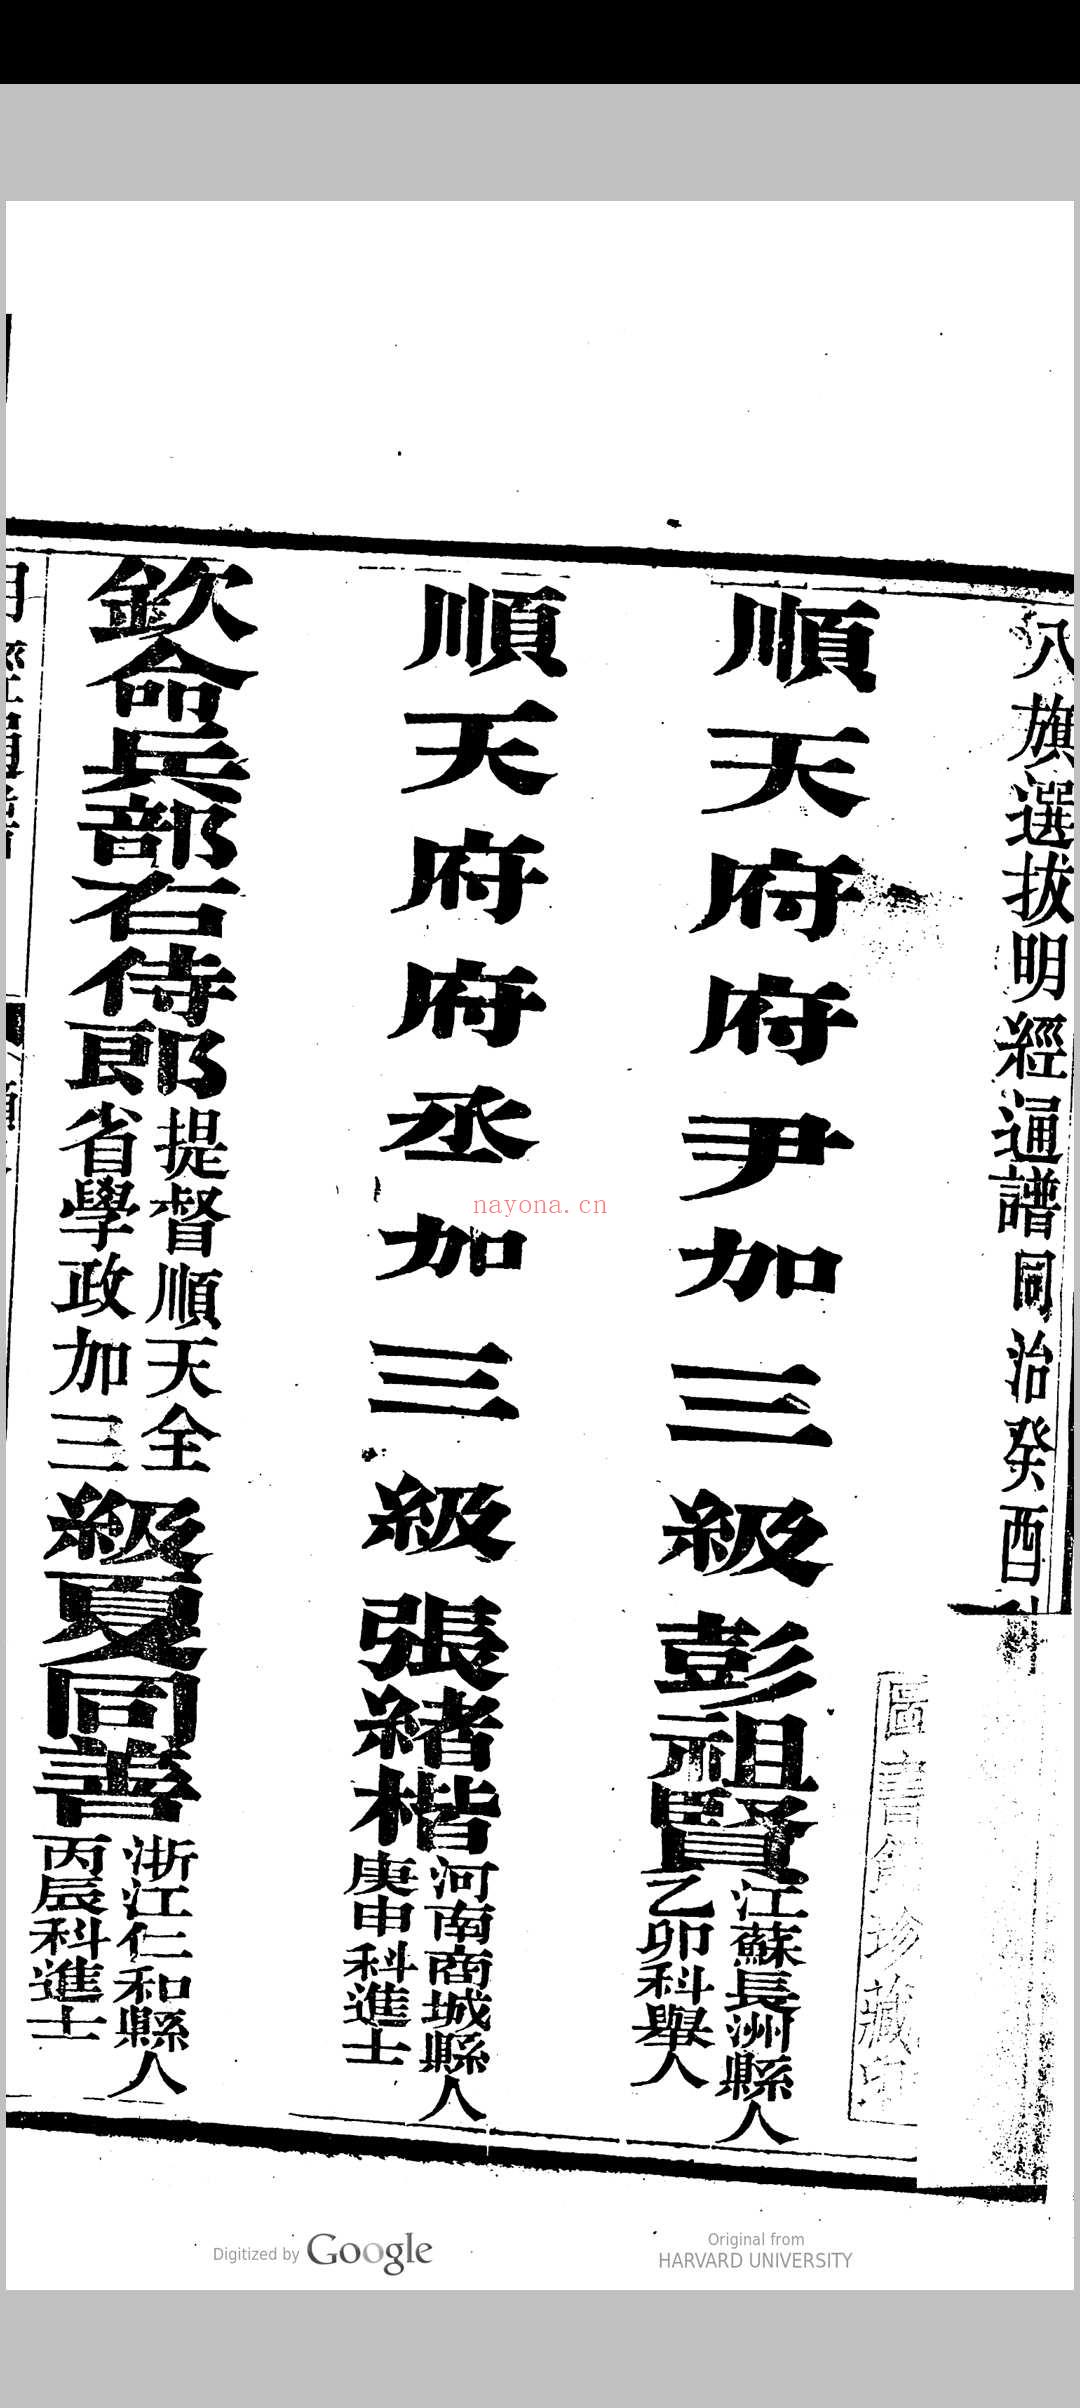 八旗選拔明經通譜同治癸酉
圖書館珍藏印
順天府府尹加三級彭祖賢江蘇長洲縣人
乙卯科舉人
順天府府丞加三級張緒楷河南商城縣人
庚申科進士
欽命兵部右侍郎提督順天全
省學政加三級夏同善浙江仁和縣人
丙辰科進士
nayona.cn
Digitized by Google
Original from
HARVARD UNIVERSITY